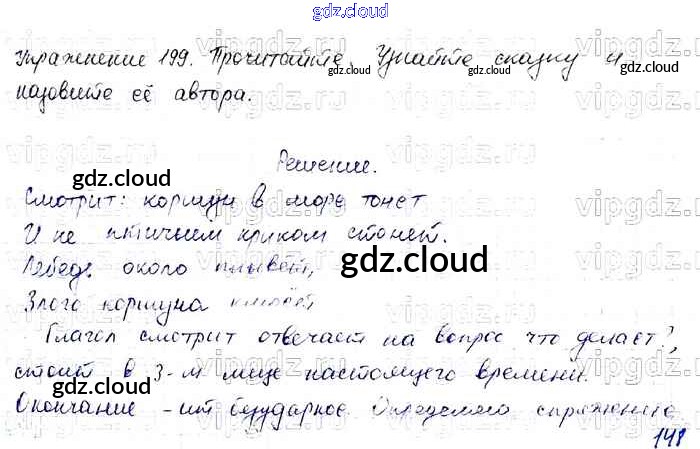 gdz.cloud
Упражнение 199. Прочитайте. Узнайте сказку и
назовите её автора.
Решение.
Смотрит: коршун в море тонет
И не птичьим криком стонет.
Лебедь около плывёт,
Злого коршуна клюёт
Глагол смотрит отвечает на вопрос что делает?,
стоит в 3-м лице настоящего времени.
Окончание -ит безударное. Определяю спряжение
148